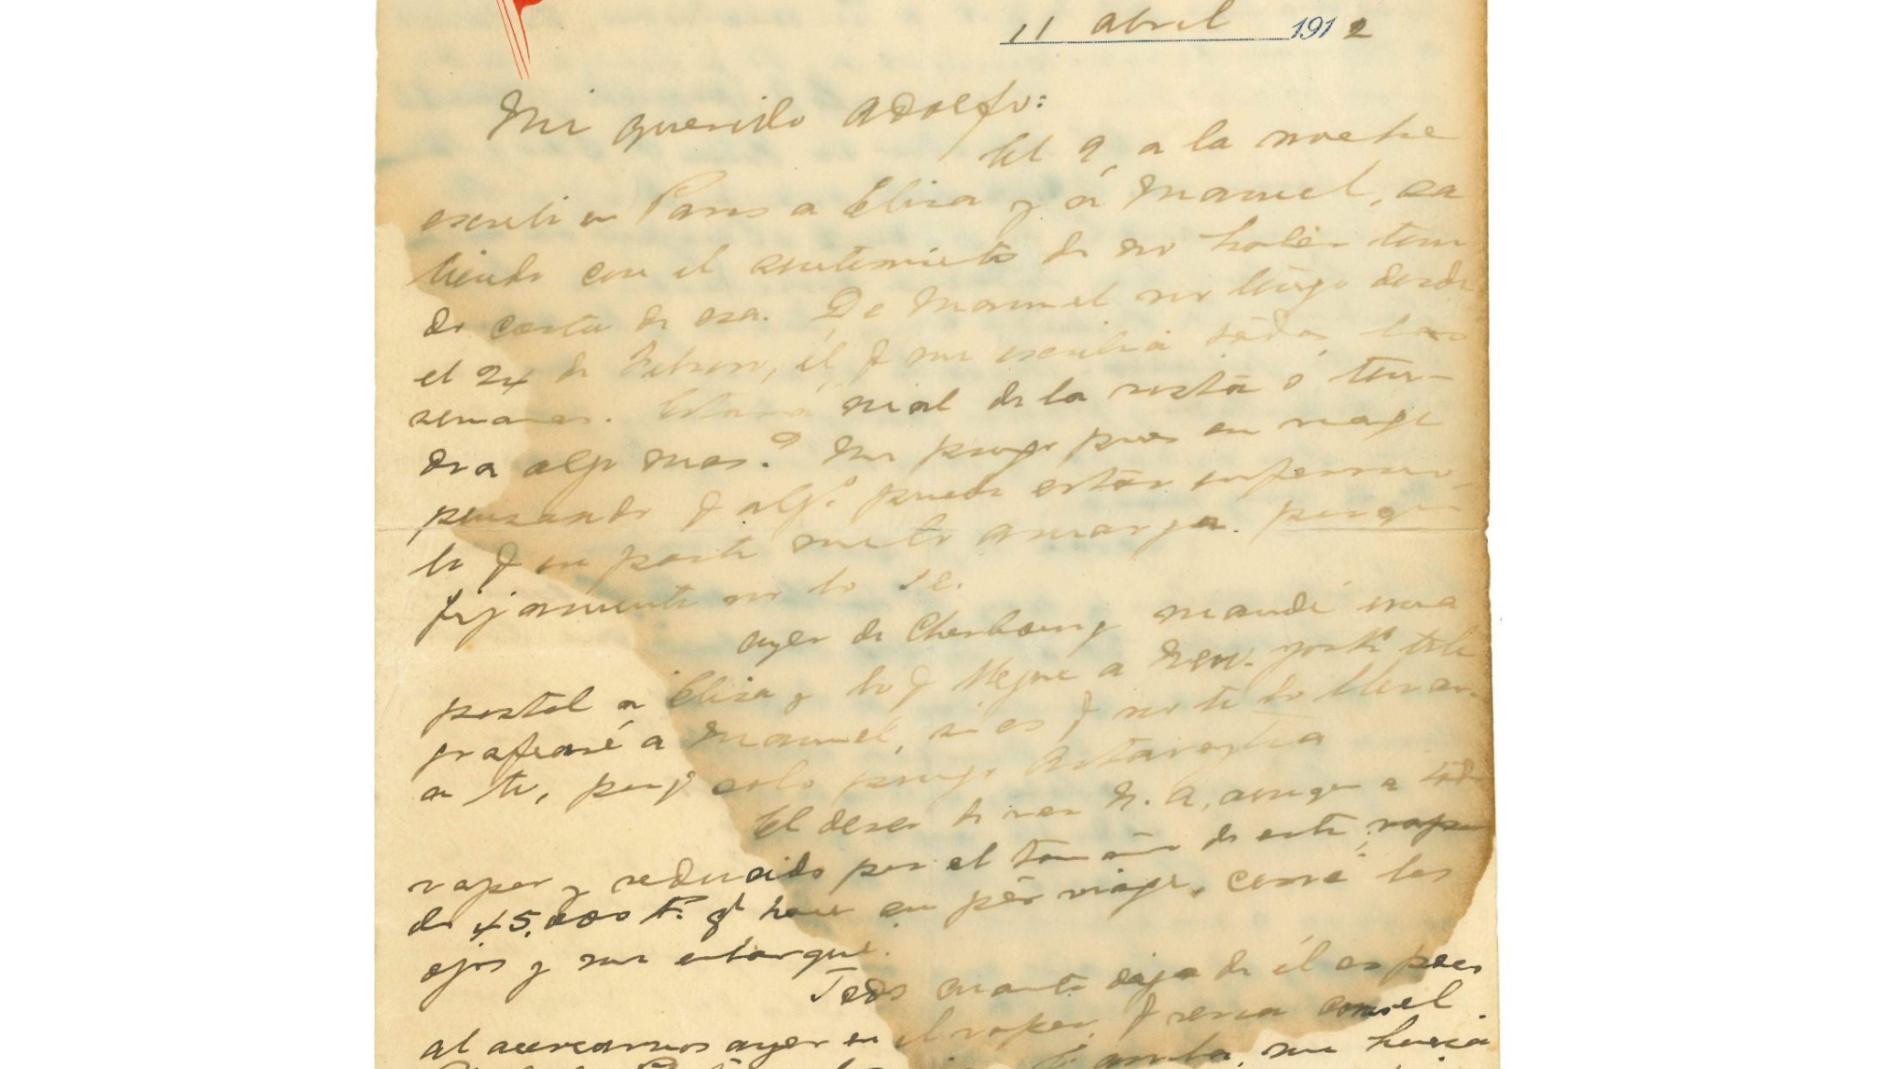 11 abril 1912
Mi querido Adolfo:
El 9, a la noche
escribi en Paris a Elisa y á Manuel, sa
liendo con el sentimiento de no haber teni
do carta de esa. De Manuel no tengo desde
el 24 de Febrero, él, q me escribia todas las
semanas. Estará mal de la vista ó ten-
dra algo mas? Me pongo pues en viaje
pensando q alg.º puede estar enfermo,
lo q en parte me lo amarga. porq
fijamente no lo se.
ayer de Cherbourg mandé una
postal a Elisa y lo q llegue a New-york tele
grafiaré a Manuel, si es q no te lo llevan
a ti, porq solo pongo
El deseo de ver N. A, a todo
vapor y seducido por el tamaño de este vapor
de 45,000 T.s q hace su per viaje, cerré los
ojos y me embarqué.
Todo cuanto diga de él es poco
al acercarnos ayer en el vapor, q seria como el
me hacia